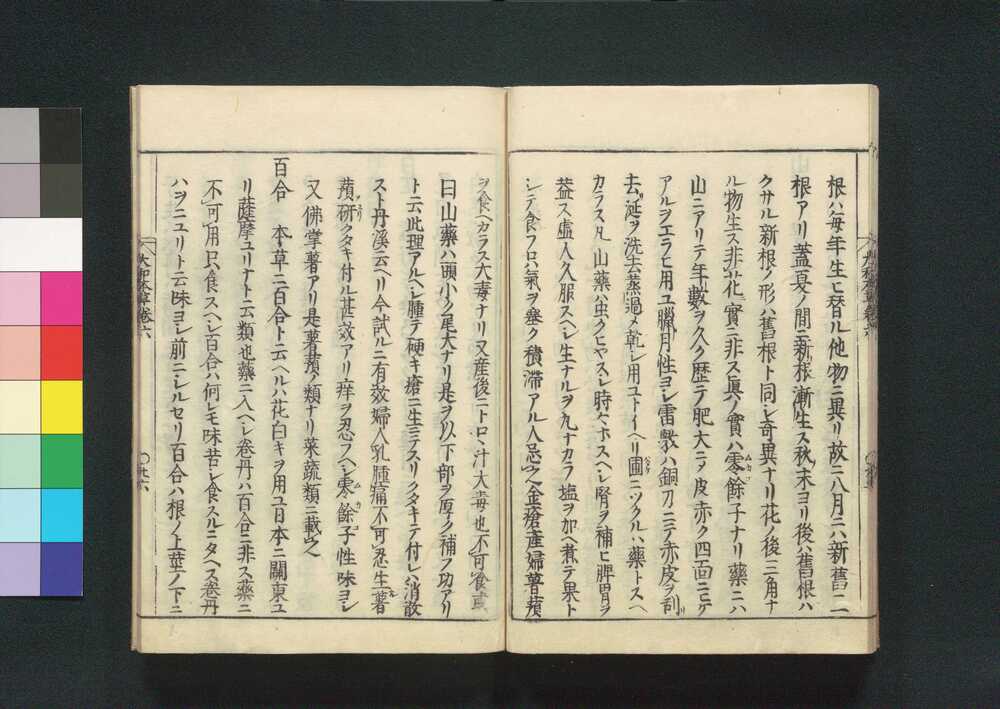 根ハ毎年生ヒ替ル他物ニ異リ故ニ八月ニハ新舊二
根アリ蓋夏ノ間ニ新根漸生ス秋ノ末ヨリ後ハ舊根ハ
クサル新根ノ形ハ舊根ト同シ奇異ナリ花ノ後三角ナ
ル物生ス非花ニ實ニ非ス眞ノ實ハ零餘子ナリ藥ニハ
山ニアリテ年數ヲ久ク歴テ肥大ニ〆皮赤ク四面ニヒゲ
アルヲエラヒ用ユ臘月性ヨシ雷斆ハ銅刀ニテ赤皮ヲ刮
去涎ヲ洗去蒸過〆乾シ用ユトイヘリ圃ニツクルハ藥トスヘ
カラス凡山藥ハ虫クヒヤスシ時々ホスヘシ腎ヲ補ヒ脾胃ヲ
益ス虚人久服スヘシ生ナルヲ九ナカラ塩ヲ加ヘ煮テ果ト
シテ食フハ氣ヲ塞ク積滞アル人忌之金瘡産婦薯蕷
ヲ食ヘカラス大毒ナリ又産後ニトロヽ汁大毒也不可食或
曰山藥ハ頭小ク尾大ナリ是ヲ以下部ヲ厚ク補フ功アリ
ト云此理アルヘシ腫テ硬キ瘡ニ生ニテスリクタキテ付レハ消散
スト丹溪云ヘリ今試ルニ有效婦人乳腫痛不可忍生薯
蕷研クタキ付ル甚效アリ痒ヲ忍フヘシ零餘子性味ヨシ
又佛掌薯アリ是薯蕷ノ類ナリ菜蔬類ニ載之
百合 本草ニ百合ト云ヘルハ花白キヲ用ユ日本ニ關東ユ
リ薩摩ユリナトニ云類也藥ニ入ヘシ卷丹ハ百合ニ非ス藥ニ
不可用只食スヘシ百合ハ何レモ味苦シ食スルニタヘス卷丹
ハヲニユリト云味ヨシ前ニシルセリ百合ハ根ノ上莖ノ下ニ
大和本草卷六